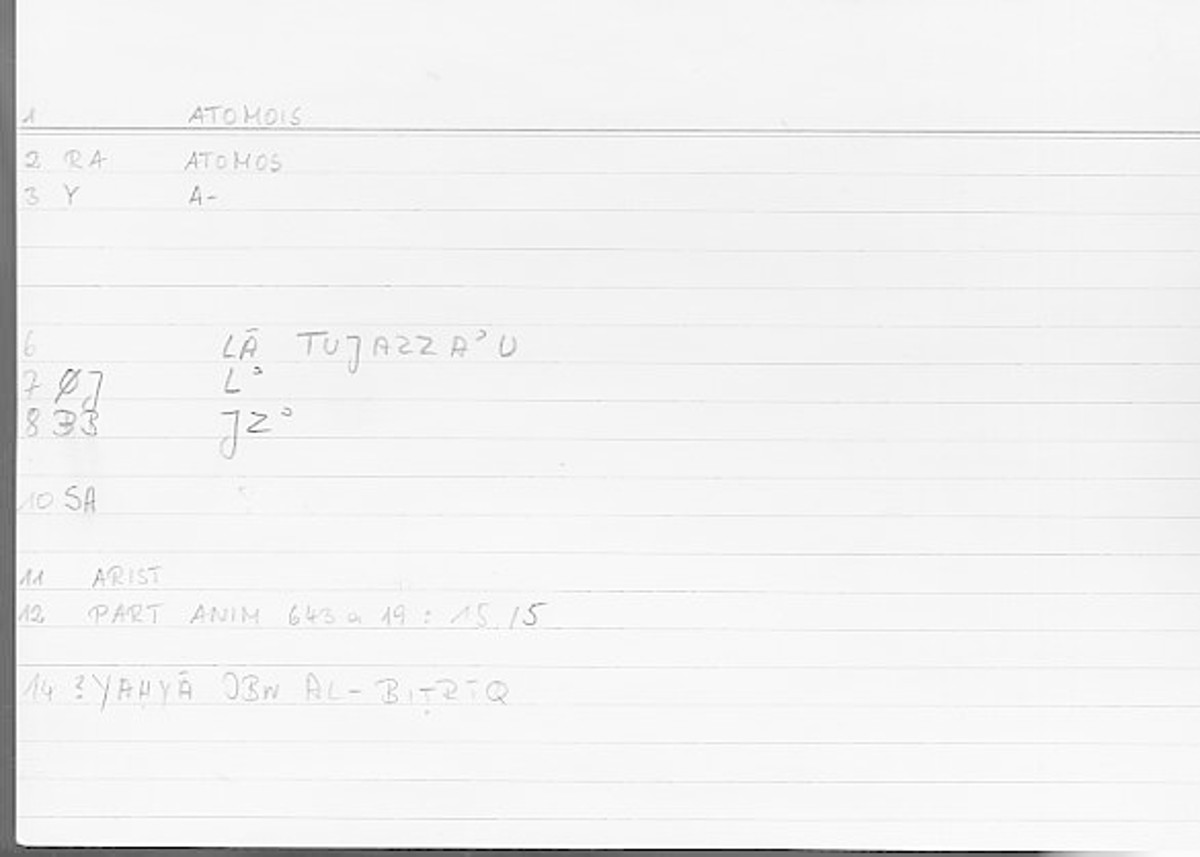 1 ATOMOIS
2 RA ATOMOS
3 Y A-
6 LĀ TUJAZZAʾU
7 ØJ Lʾ
8 BB JZʾ
10 SA
11 ARIST
12 PART ANIM 643 a 19 : 15.15
14 ? YAḤYĀ IBN AL-BIṬRĪQ